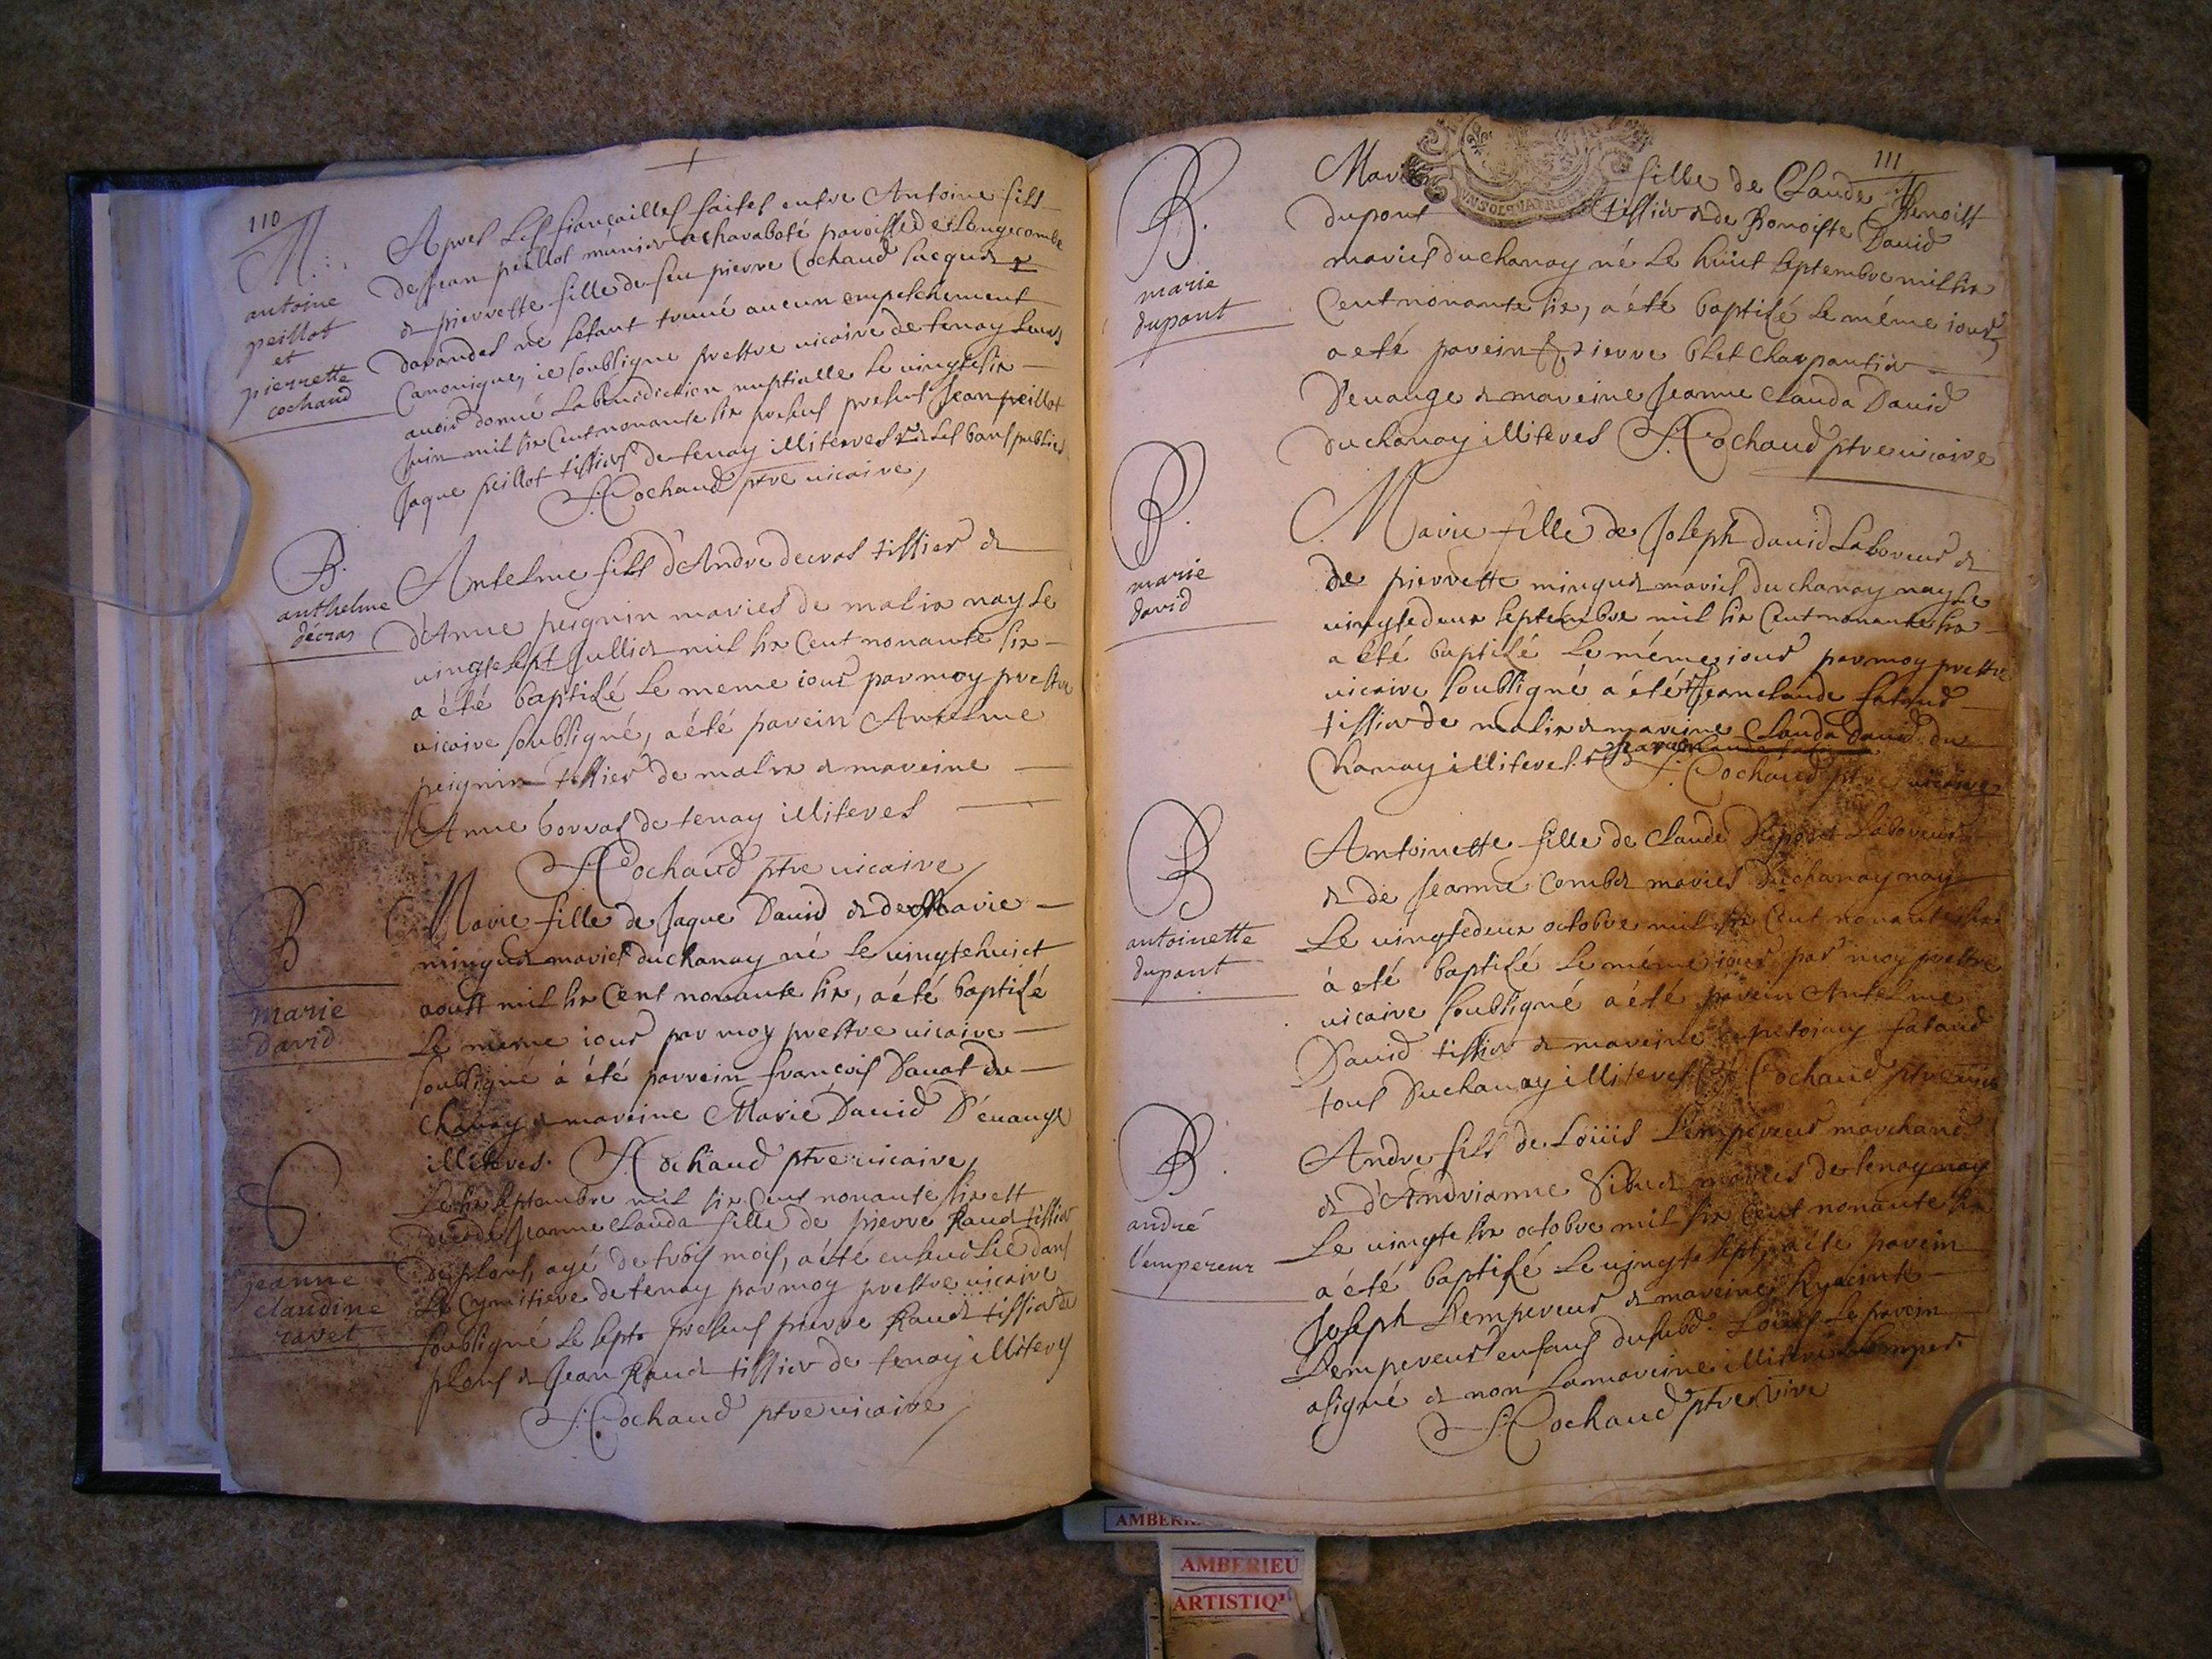 110
M.
antoine
peillot
et
pierrette
cochaud
Apres Les fiançailles faites entre Antoine fils
de Jean peillot munier a charabote paroisse de Longecombe
& pierrette fille de feu pierre Cochaud Jacquet
davandes ne sestant trouué aucun empeschement
Canonique, ie soubsigne prestre uicaire de tenay Leurs
auoir donné La benediction nuptialle Le uingtesix
Juin mil six Cent nonante six presens Jean peillot
Jaque peillot tissiers de tenay illiteres Les bans publies
Cochaud ptre uicaire
B.
anthelme
décras
Antelme fils d'Andre decras tissier &
d'Anne peignin maries de malix nay Le
uingtesept Juillet mil six Cent nonante six
a été baptisé Le meme iour par moy prestre
uicaire soubsigné, a été parein Antelme
peignin tissier de malix & mareine
Anne borras de tenay illiteres
Cochaud ptre uicaire
B
marie
david
Marie fille de Jaque Dauid & de Marie
minguet maries du chanay né Le uingtehuict
aoust mil six Cent nonante six, a été baptisé
Le meme iour par moy prestre uicaire
soubsigné à été parrein françois Dauat du
chanay & mareine Marie Dauid D'éuange
illiteres. Cochaud ptre uicaire
S.
jeanne
claudine
ravet
Le six septembre mil six Cent nonante six est
decedé Jeanne Clauda fille de pierre Rauet tissier
de plans, agé de trois mois, a été enseuelie dans
Le Cymitiere de tenay par moy prestre uicaire
soubsigné Le sept presens pierre Rauet tissier de
plans & Jean Rauet tissier de tenay illiteres
Cochaud ptre uicaire
111
B.
marie
dupont
Marie fille de Claude Benoist
dupont tissier & de Benoiste Dauid
maries du chanay né Le huict septembre mil six
Cent nonante six, a été baptisé Le méme iour,
a eté parein pierre blet Charpantier
D'euange & mareine Jeanne Clauda Dauid
du chanay illiteres Cochaud ptre uicaire
B.
marie
david
Marie fille de Joseph dauid Laboreur &
de pierrette minguet maries du chanay nay Le
uingtedeux septembre mil six Cent nonante six
a été baptisé Le méme iour par moy prestre
uicaire soubsigné a été Jeanclaude
tissier de malix & mareine Clauda Dauid du
Chanay illiteres Cochaud ptre uicaire
B
antoinette
dupont
Antoinette fille de Claude Dupont Laboreur
& de Jeanne Combet maries Du chanay nay
Le uingtedeux octobre mil six Cent nonante six
à eté baptisé Le méme iour par moy prestre
uicaire soubsigné a été parein Antelme
Dauid tissier & mareine
tous Du chanay illiteres Cochaud ptre uicaire
B.
andré
l'empereur
Andre fils de Loüis L'empereur marchand
& d'Andrianne Sibuet maries de tenay nay
Le uingte six octobre mil six Cent nonante six
a été baptisé Le uingte sept, a éte parein
Joseph L'empereur & mareine Hyacinte
L'empereur enfans dususd. Loüis Le parein
a signé & non La mareine illitere
Cochaud ptre vire
AMBERIEU
ARTISTIQ